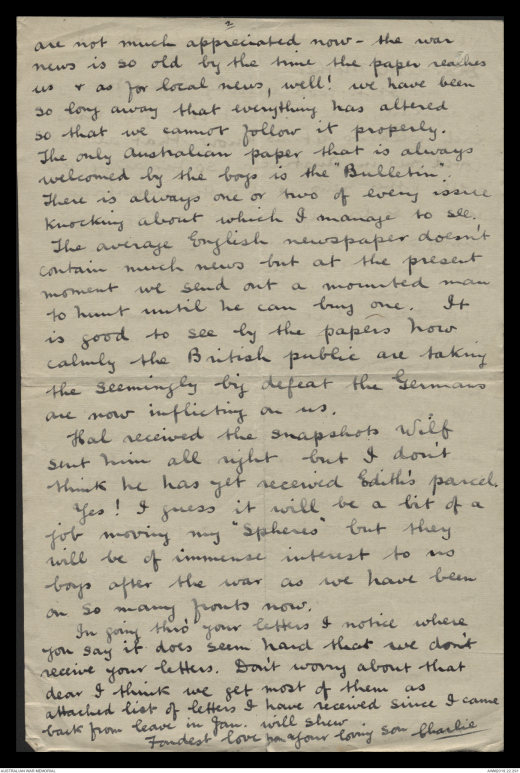 2
are not much appreciated now - the war
news is so old by the time the paper reaches
us & as for local news, well! we have been
so long away that everything has altered
so that we cannot follow it properly.
The only Australian paper that is always
welcomed by the boys is the "Bulletin".
There is always one or two of every issue
knocking about which I manage to see.
The average English newspaper doesn't
contain much news but at the present
moment we send out a mounted man
to hunt until he can buy one. It
is good to see by the papers how
calmly the British public are taking
the seemingly big defeat the Germans
are now inflicting on us.
Hal received the snapshots Wilf
sent him all right but I don't
think he has yet received Edith's parcel.
Yes! I guess it will be a bit of a
job moving my "Spheres" but they
will be of immense interest to us
boys after the war as we have been
on so many fronts now.
In going thro' your letters I notice where
you say it does seem hard that we don't
receive your letters. Don't worry about that
dear I think we get most of them as
attached list of letters I have received since I came
back from leave in Jan. will shew
Fondest love from your loving son Charlie
AUSTRALIAN WAR MEMORIAL